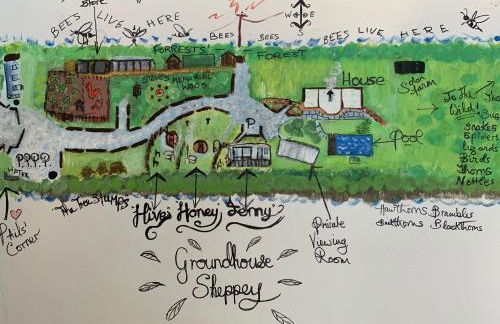 BEES LIVE HERE
Store
W E
S
BEES BEES BEES LIVE HERE
FORRESTS
FOREST
STEVE'S MEMORIAL
WOOD
House
Solar
farm
To the
Wild!
Bugs
Snakes
Spiders
Lizards
Birds
Thorns
Nettles
P
Pool
WATER
Corner
The Tree Stumps
Hive Honey Jenny
Private
Viewing
Room
Hawthorns Brambles
Blackthorns
Groundhouse
Sheppey